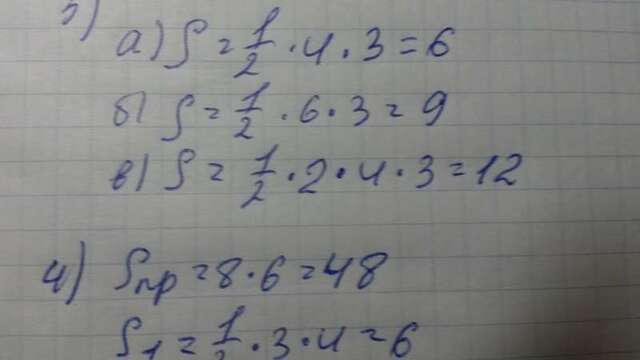 3)
а) S = 1/2 · 4 · 3 = 6
б) S = 1/2 · 6 · 3 = 9
в) S = 1/2 · 2 · 4 · 3 = 12
4) Sпр = 8 · 6 = 48
S1 = 1/2 · 3 · 4 = 6